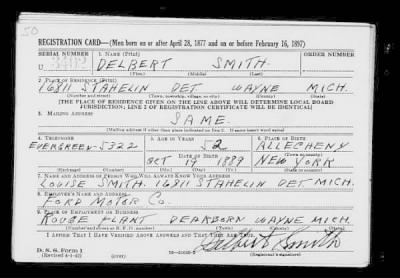 REGISTRATION CARD—(Men born on or after April 28, 1877 and on or before February 16, 1897)
SERIAL NUMBER
1. NAME (Print)
ORDER NUMBER
U
DELBERT SMITH
(First) (Middle) (Last)
2. PLACE OF RESIDENCE (Print)
16811 STAHELIN DET WAYNE MICH.
(Number and street) (Town, township, village, or city) (County) (State)
[THE PLACE OF RESIDENCE GIVEN ON THE LINE ABOVE WILL DETERMINE LOCAL BOARD
JURISDICTION; LINE 2 OF REGISTRATION CERTIFICATE WILL BE IDENTICAL]
3. MAILING ADDRESS
SAME.
[Mailing address if other than place indicated on line 2. If same insert word same]
4. TELEPHONE
5. AGE IN YEARS
6. PLACE OF BIRTH
EVERGREEN-5322
52
ALLECHENY
(Town or county)
OCT 19 1889
NEW YORK
(Exchange) (Number)
(Mo.) (Day) (Yr.)
(State or country)
7. NAME AND ADDRESS OF PERSON WHO WILL ALWAYS KNOW YOUR ADDRESS
LOUISE SMITH. 16811 STAHELIN DET MICH.
8. EMPLOYER'S NAME AND ADDRESS
FORD MOTOR CO.
9. PLACE OF EMPLOYMENT OR BUSINESS
ROUGE PLANT DEARBORN WAYNE MICH.
(Number and street or R. F. D. number) (Town) (County) (State)
I AFFIRM THAT I HAVE VERIFIED ABOVE ANSWERS AND THAT THEY ARE TRUE.
D. S. S. Form 1
(Revised 4-1-42) (over)
Delbert Smith
(Registrant's signature)